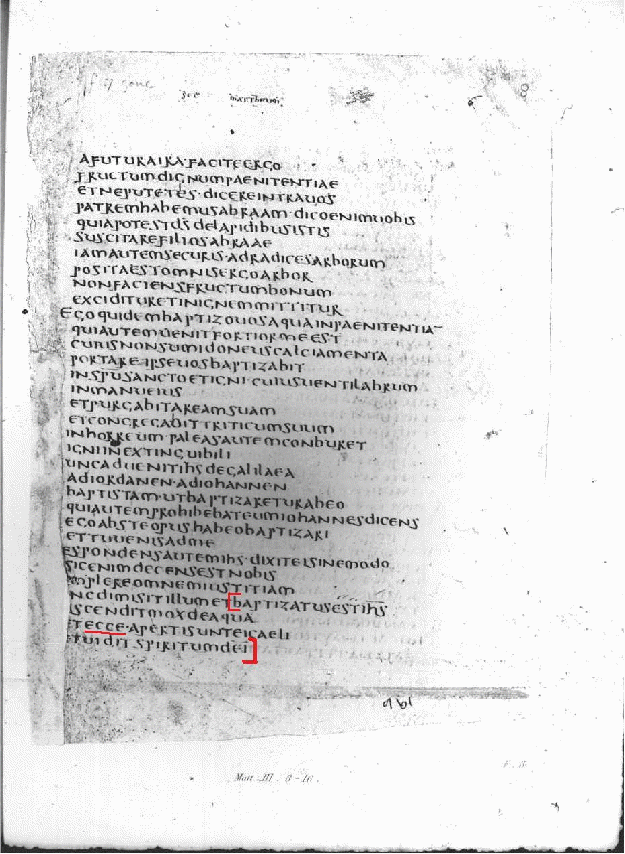 AFUTURAIRA·FACITEERGO
FRUCTUMDIGNUMPAENITENTIAE
ETNEPUTETES·DICEREINTRAUOS
PATREMHABEMUSABRAAM·DICOENIMUOBIS
QUIAPOTESTDS DELAPIDIBUSISTIS
SUSCITAREFILIOSABRAAE
IAMAUTEMSECURIS·ADRADICESARBORUM
POSITAESTOMNISERGOARBOR
NONFACIENSFRUCTUMBONUM
EXCIDITURETINIGNEMMITTITUR
EGOQUIDEMBAPTIZOUOSAQUAINPAENITENTIA
QUIAUTEMUENITFORTIORMEEST
CUIUSNONSUMIDONEUSCALCIAMENTA
PORTAREIPSEUOSBAPTIZABIT
INSPUSANCTOETIGNI·CUIUSUENTILABRUM
INMANUEIUS
ETPURGABITAREAMSUAM
ETCONGREGABITTRITICUMSUUM
INHORREUM·PALEASAUTEMCONBURET
IGNIINEXTINGUIBILI
UNCADUENITIHSDEGALILAEA
ADIORDANEN·ADIOHANNEN
BAPTISTAM·UTBAPTIZARETURABEO
QUIAUTEMPROHIBEBATEUMIOHANNESDICENS
EGOABSTEOPUSHABEOBAPTIZARI
ETTUUENISADME
ESPONDENSAUTEMIHS·DIXITEISINEMODO
SICENIMDECENSESTNOBIS
IMPLEREOMNEMIUSTITIAM
NCDIMISITILLUMETBAPTIZATUSESTIHS
ISCENDITMOXDEAQUA
ETECCE·APERTISUNTEICAELI
ETUIDIT SPIRITUMDEI
Mat. III. 8-16.